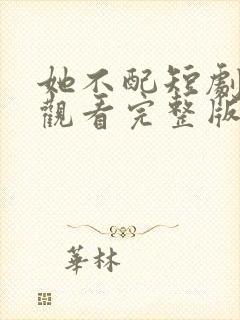 她不配短劇
觀看完整版
華林